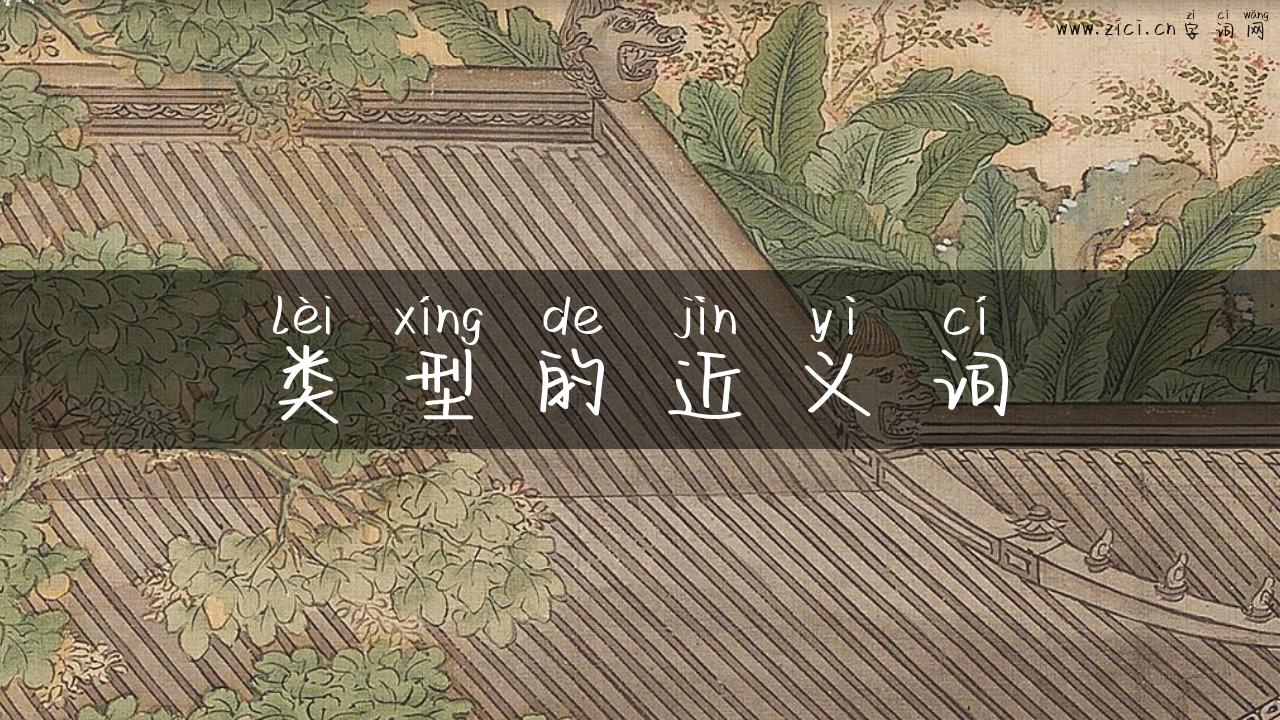 zì cí wǎng
www.zici.cn 字词网
lèi xíng de jìn yì cí
类型的近义词